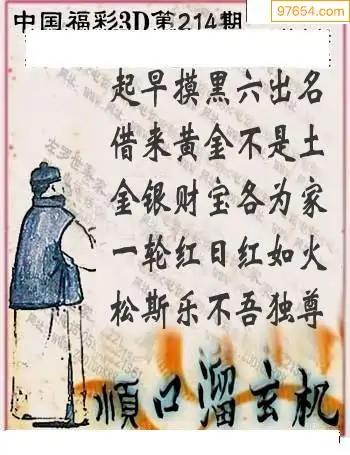 中国福彩3D第214期
97654.com
起早摸黑六出名
借来黄金不是土
金银财宝各为家
一轮红日红如火
松斯乐不吾独尊
順口溜玄机